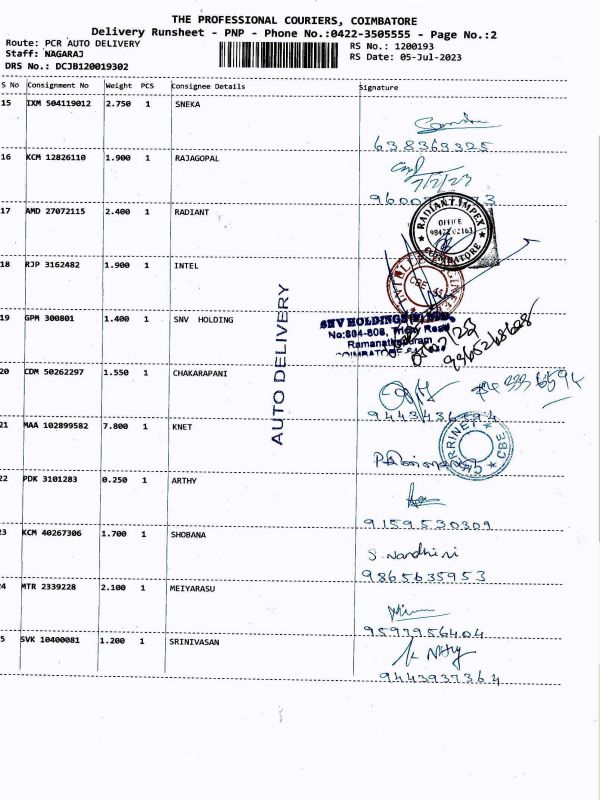 THE PROFESSIONAL COURIERS, COIMBATORE
Delivery Runsheet - PNP - Phone No.:0422-3505555 - Page No.:2
Route: PCR AUTO DELIVERY
Staff: NAGARAJ
DRS No.: DCJB120019302
RS No.: 1200193
RS Date: 05-Jul-2023
S No Consignment No Weight PCS Consignee Details Signature
15 IXM 504119012 2.750 1 SNEKA
638363325
16 KCM 12826110 1.900 1 RAJAGOPAL
17 AMD 27072115 2.400 1 RADIANT
RADIANT IMPEX
OFFICE
COIMBATORE
18 RJP 3162482 1.900 1 INTEL
CBE
19 GPM 300801 1.400 1 SNV HOLDING
SNV HOLDINGS
No:804-808, Trichy Road
Ramanathapuram
AUTO DELIVERY
20 CDM 50262297 1.550 1 CHAKARAPANI
21 MAA 102899582 7.800 1 KNET
CBE
22 PDK 3101283 0.250 1 ARTHY
9159530309
23 KCM 40267306 1.700 1 SHOBANA
S. Nandhini
9865635953
24 MTR 2339228 2.100 1 MEIYARASU
9597956404
5 SVK 10400081 1.200 1 SRINIVASAN
9443937364